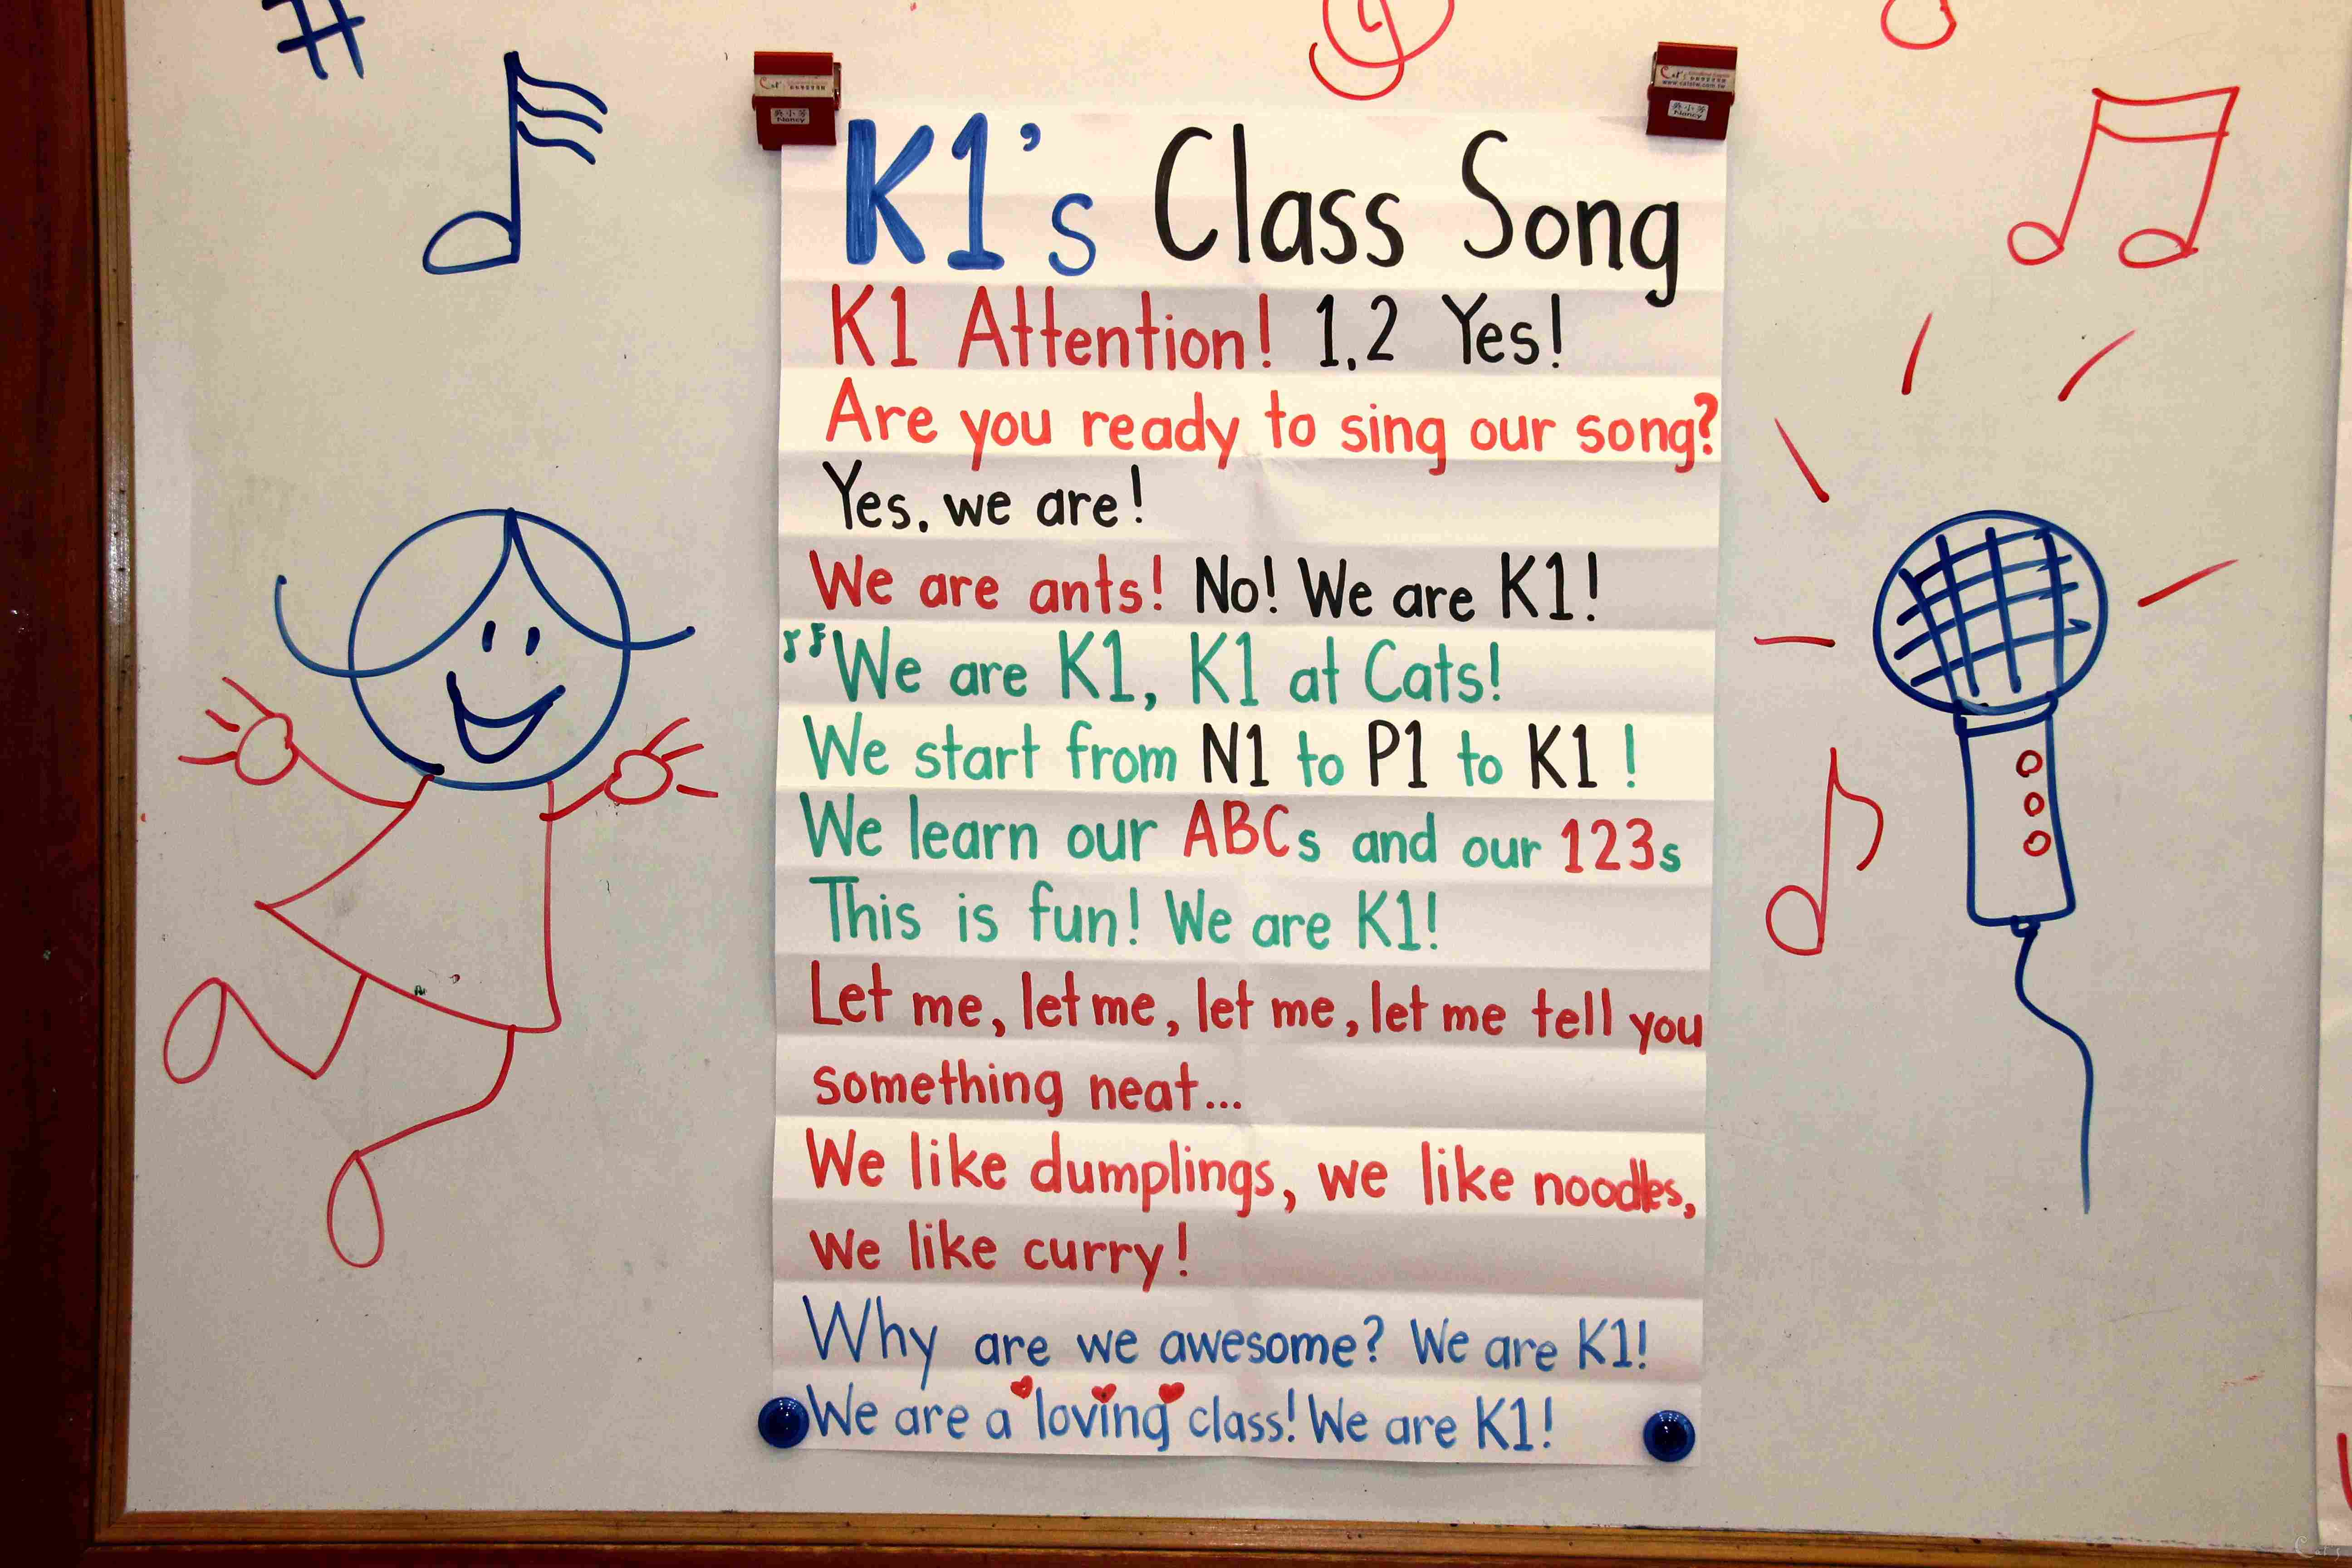 K1's Class Song
K1 Attention! 1,2 Yes!
Are you ready to sing our song?
Yes, we are!
We are ants! No! We are K1!
We are K1, K1 at Cats!
We start from N1 to P1 to K1!
We learn our ABCs and our 123s
This is fun! We are K1!
Let me, let me, let me, let me tell you
something neat...
We like dumplings, we like noodles,
we like curry!
Why are we awesome? We are K1!
We are a loving class! We are K1!
Nancy
Nancy